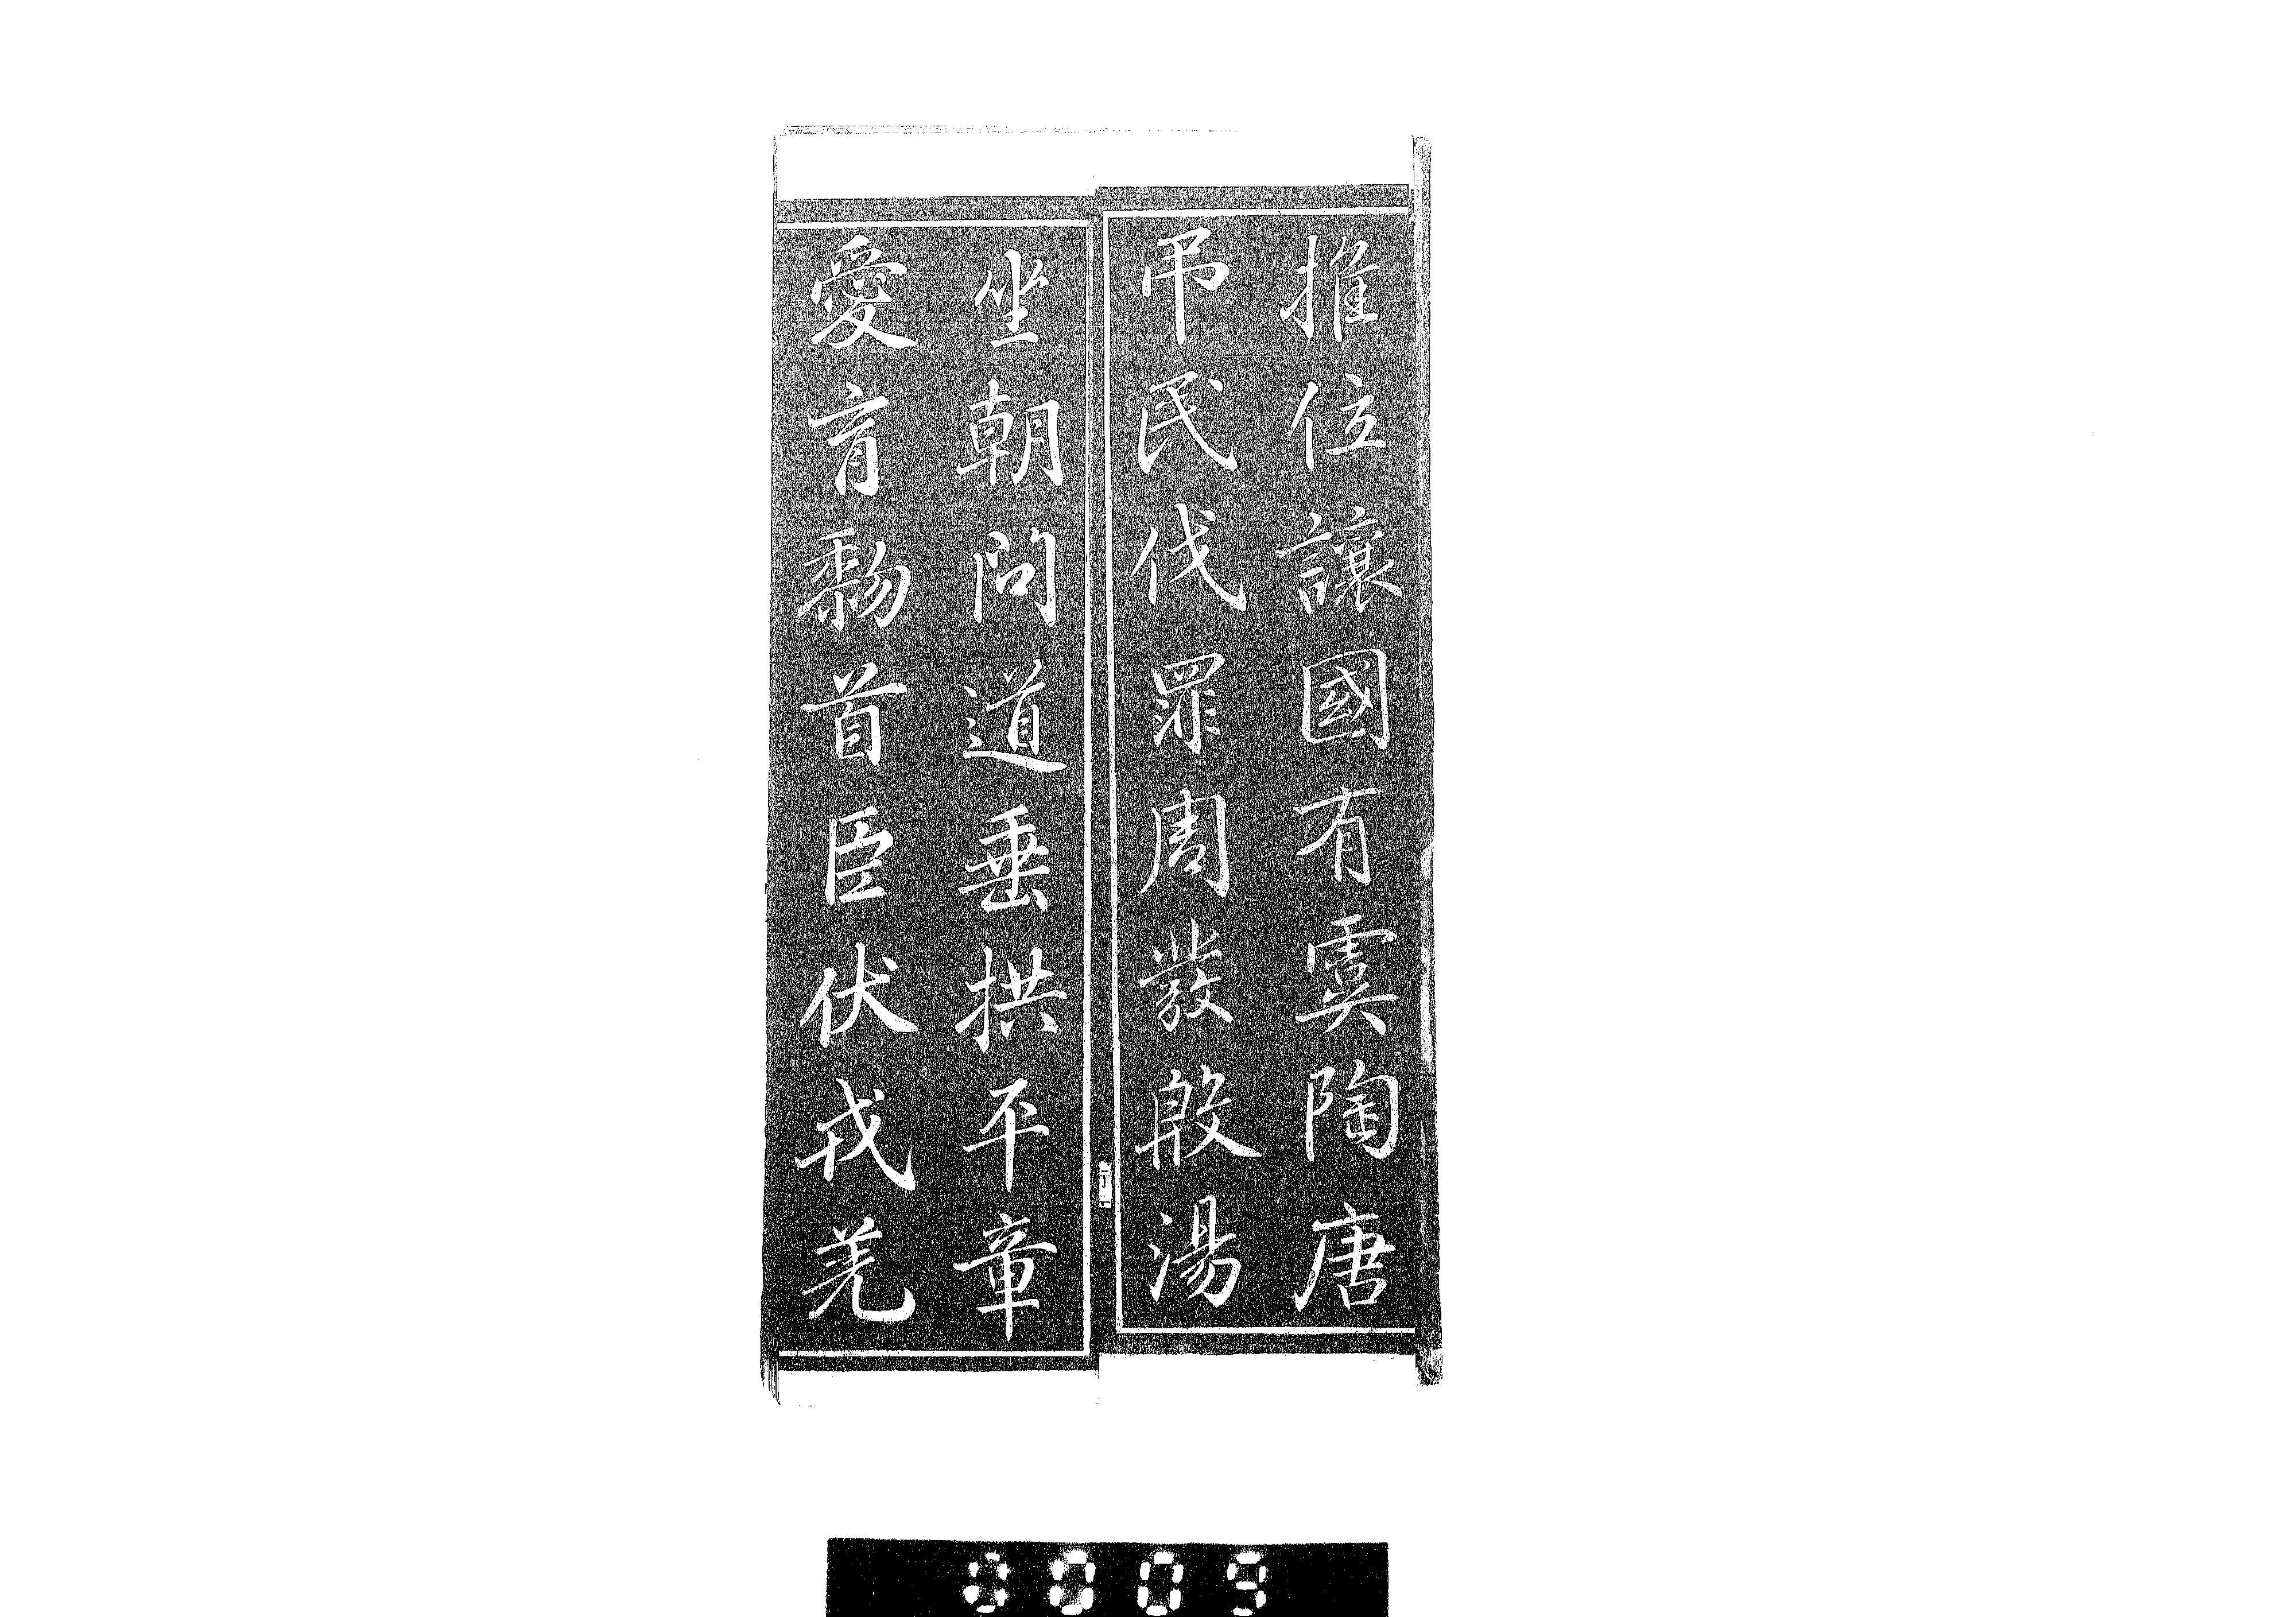 推位讓國有虞陶唐
吊民伐罪周發殷湯
坐朝問道垂拱平章
愛育黎首臣伏戎羌
0005